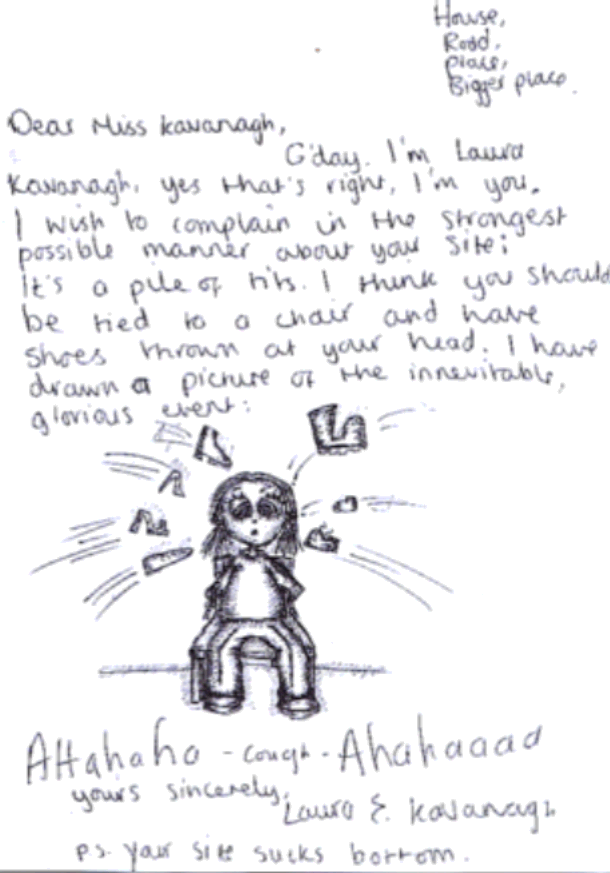 House,
Road,
place,
Bigger place.
Dear Miss Kavanagh,
G'day. I'm Laura
Kavanagh, yes that's right, I'm you.
I wish to complain in the strongest
possible manner about your site;
It's a pile of tits. I think you should
be tied to a chair and have
shoes thrown at your head. I have
drawn a picture of the innevitable,
glorious event:
AHahaha - cough - Ahahaaaa
yours sincerely,
Laura E. Kavanagh
p.s. your site sucks bottom.